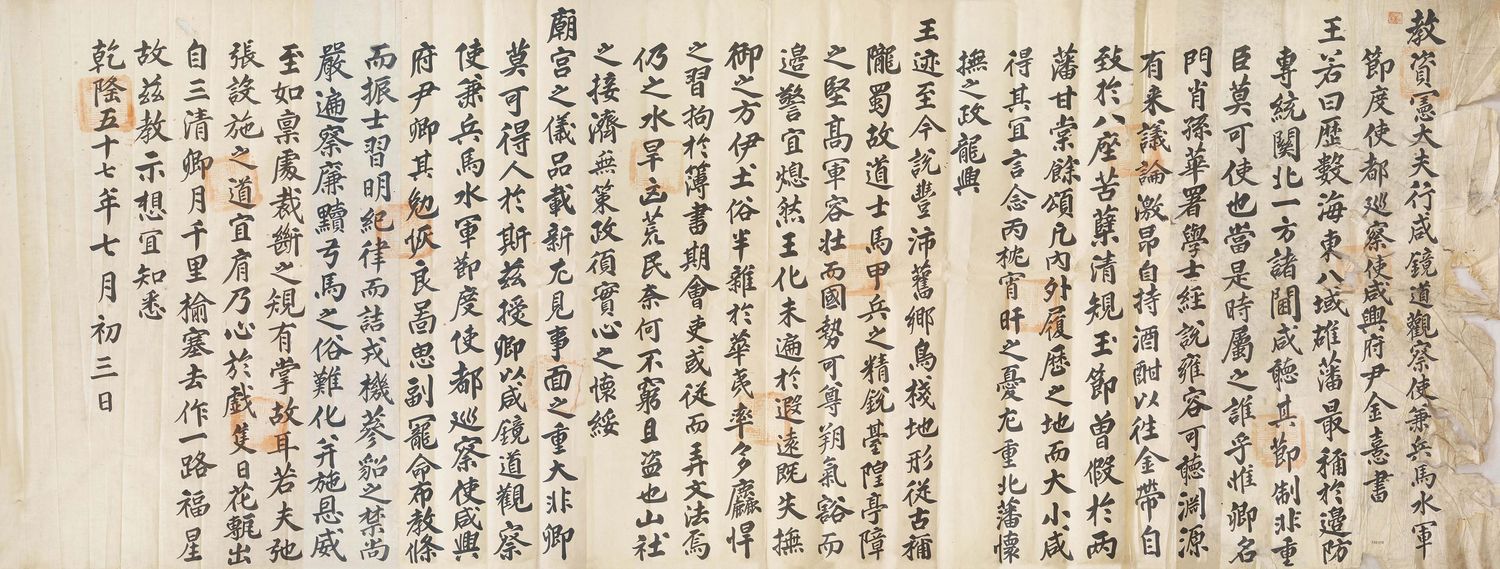 教資憲大夫行咸鏡道觀察使兼兵馬水軍
節度使都巡察使咸興府尹金憙書
王若曰歷數海東八域雄藩最稱於邊防
專統關北一方諸閫咸聽其節制非重
臣莫可使也當是時屬之誰乎惟卿名
門肖孫華署學士經說雍容可聽淵源
有來議論激昂自持酒酣以往金帶自
致於八座苦蘖清規玉節曾假於兩
藩甘棠餘頌凡內外履歷之地而大小咸
得其宜言念丙枕宵旰之憂尤重北藩懷
撫之政龍興
王迹至今說豐沛舊鄉鳥棧地形從古稱
隴蜀故道士馬甲兵之精銳臺隍亭障
之堅高軍容壯而國勢可尊朔氣豁而
邊警宜熄然王化未遍於遐遠既失撫
御之方伊土俗半雜於華夷率多麤悍
之習拘於簿書期會吏或從而弄文法焉
仍之水旱凶荒民奈何不窮且盜也山社
之接濟無策政須實心之懷綏
廟宮之儀品載新尤見事面之重大非卿
莫可得人於斯茲授卿以咸鏡道觀察
使兼兵馬水軍節度使都巡察使咸興
府尹卿其勉恢良啚思副寵命布教條
而振士習明紀律而詰戎機蔘貂之禁尚
嚴遍察廉黷弓馬之俗難化并施恩威
至如稟處裁斷之規有掌故耳若夫弛
張設施之道宜肩乃心於戲隻日花甎出
自三清卿月千里榆塞去作一路福星
故茲教示想宜知悉
乾隆五十七年七月初三日